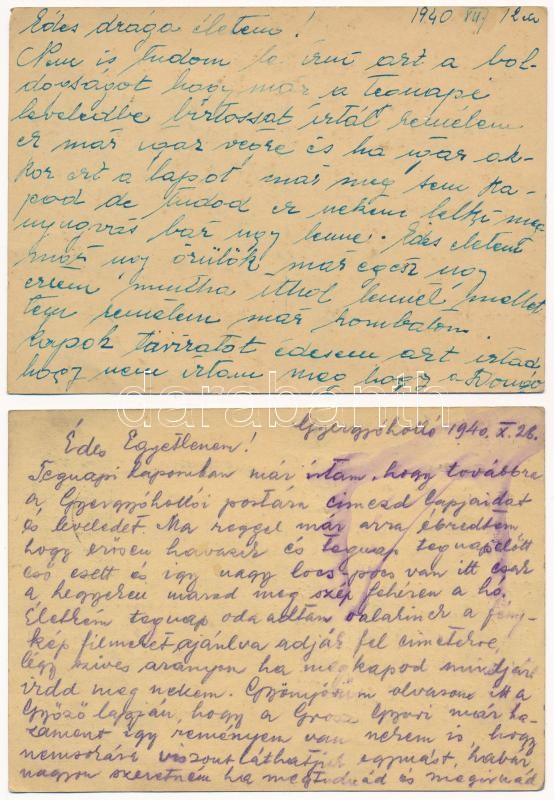 Édes drága életem! 1940 VII/ 12-én
Nem is tudom le írni azt a bol-
dogságot hogy már a tegnapi
leveledbe biztossat írtál remélem
ez már igaz végre és ha igaz ak-
kor ezt a lapot már meg sem ka-
pod de tudod ez nekem lelki meg
nyugvás bár úgy lenne. Édes életem
már úgy örülök már egész úgy
érzem mintha itthol lennél mellet
tem remélem már szombaton
kapok táviratot édesem azt írtad
hogy nem írtam meg hogy a
darabanth
Gyergyóholló 1940. X. 26.
Édes Egyetlenem!
Tegnapi lapomban már írtam, hogy továbbra
a Gyergyóhollói postára címezd lapjaidat
és leveledet. Ma reggel már arra ébredtem
hogy erősen havazik és tegnap tegnapelőtt
eső esett és így nagy locs-pocs van itt csak
a hegyeken marad meg szép fehéren a hó.
Életkém tegnap oda adtam valakinek a fény-
kép filmeket, ajánlva adják fel címetekre,
légy szíves aranyom ha megkapod mindjárt
írdd meg nekem. Gyönyörűm olvasom itt a
Győző lapján, hogy a Grosz Gyuri már ha-
zament így reményem van nekem is, hogy
nemsokára viszontláthatjuk egymást, habár
nagyon szeretném ha megtudnád és megírnád